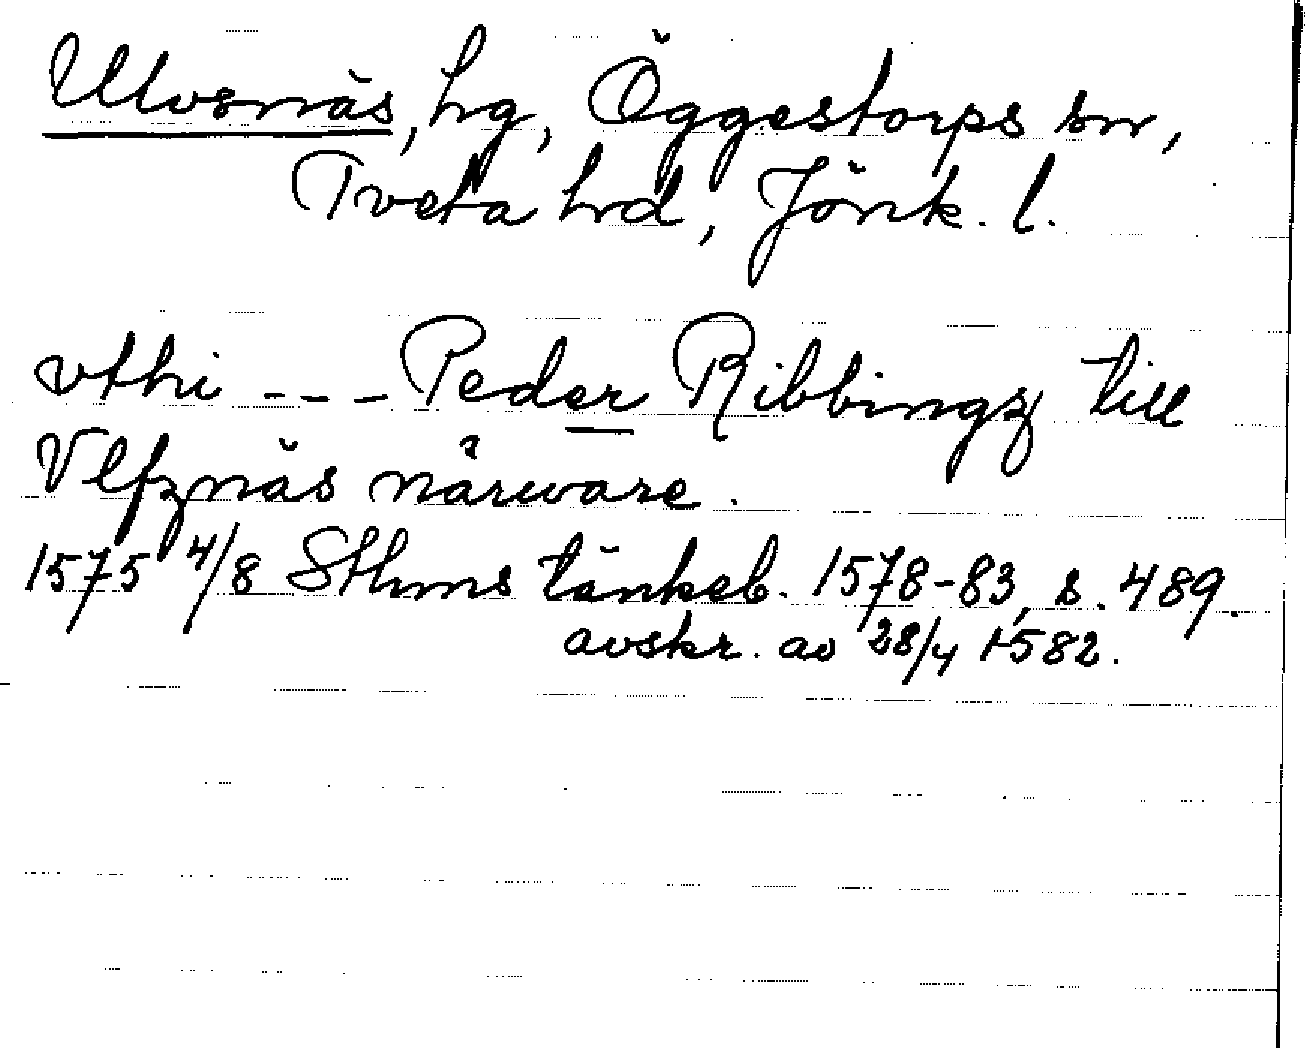 Ulvsnäs, hg, Öggestorps sn,
Tveta hrd, Jönk. l.
vthi --- Peder Ribbingz till
Vlfznäs närware.
1575 4/8 Sthms tänkeb. 1578-83, s. 489.
avskr. av 28/4 1582.